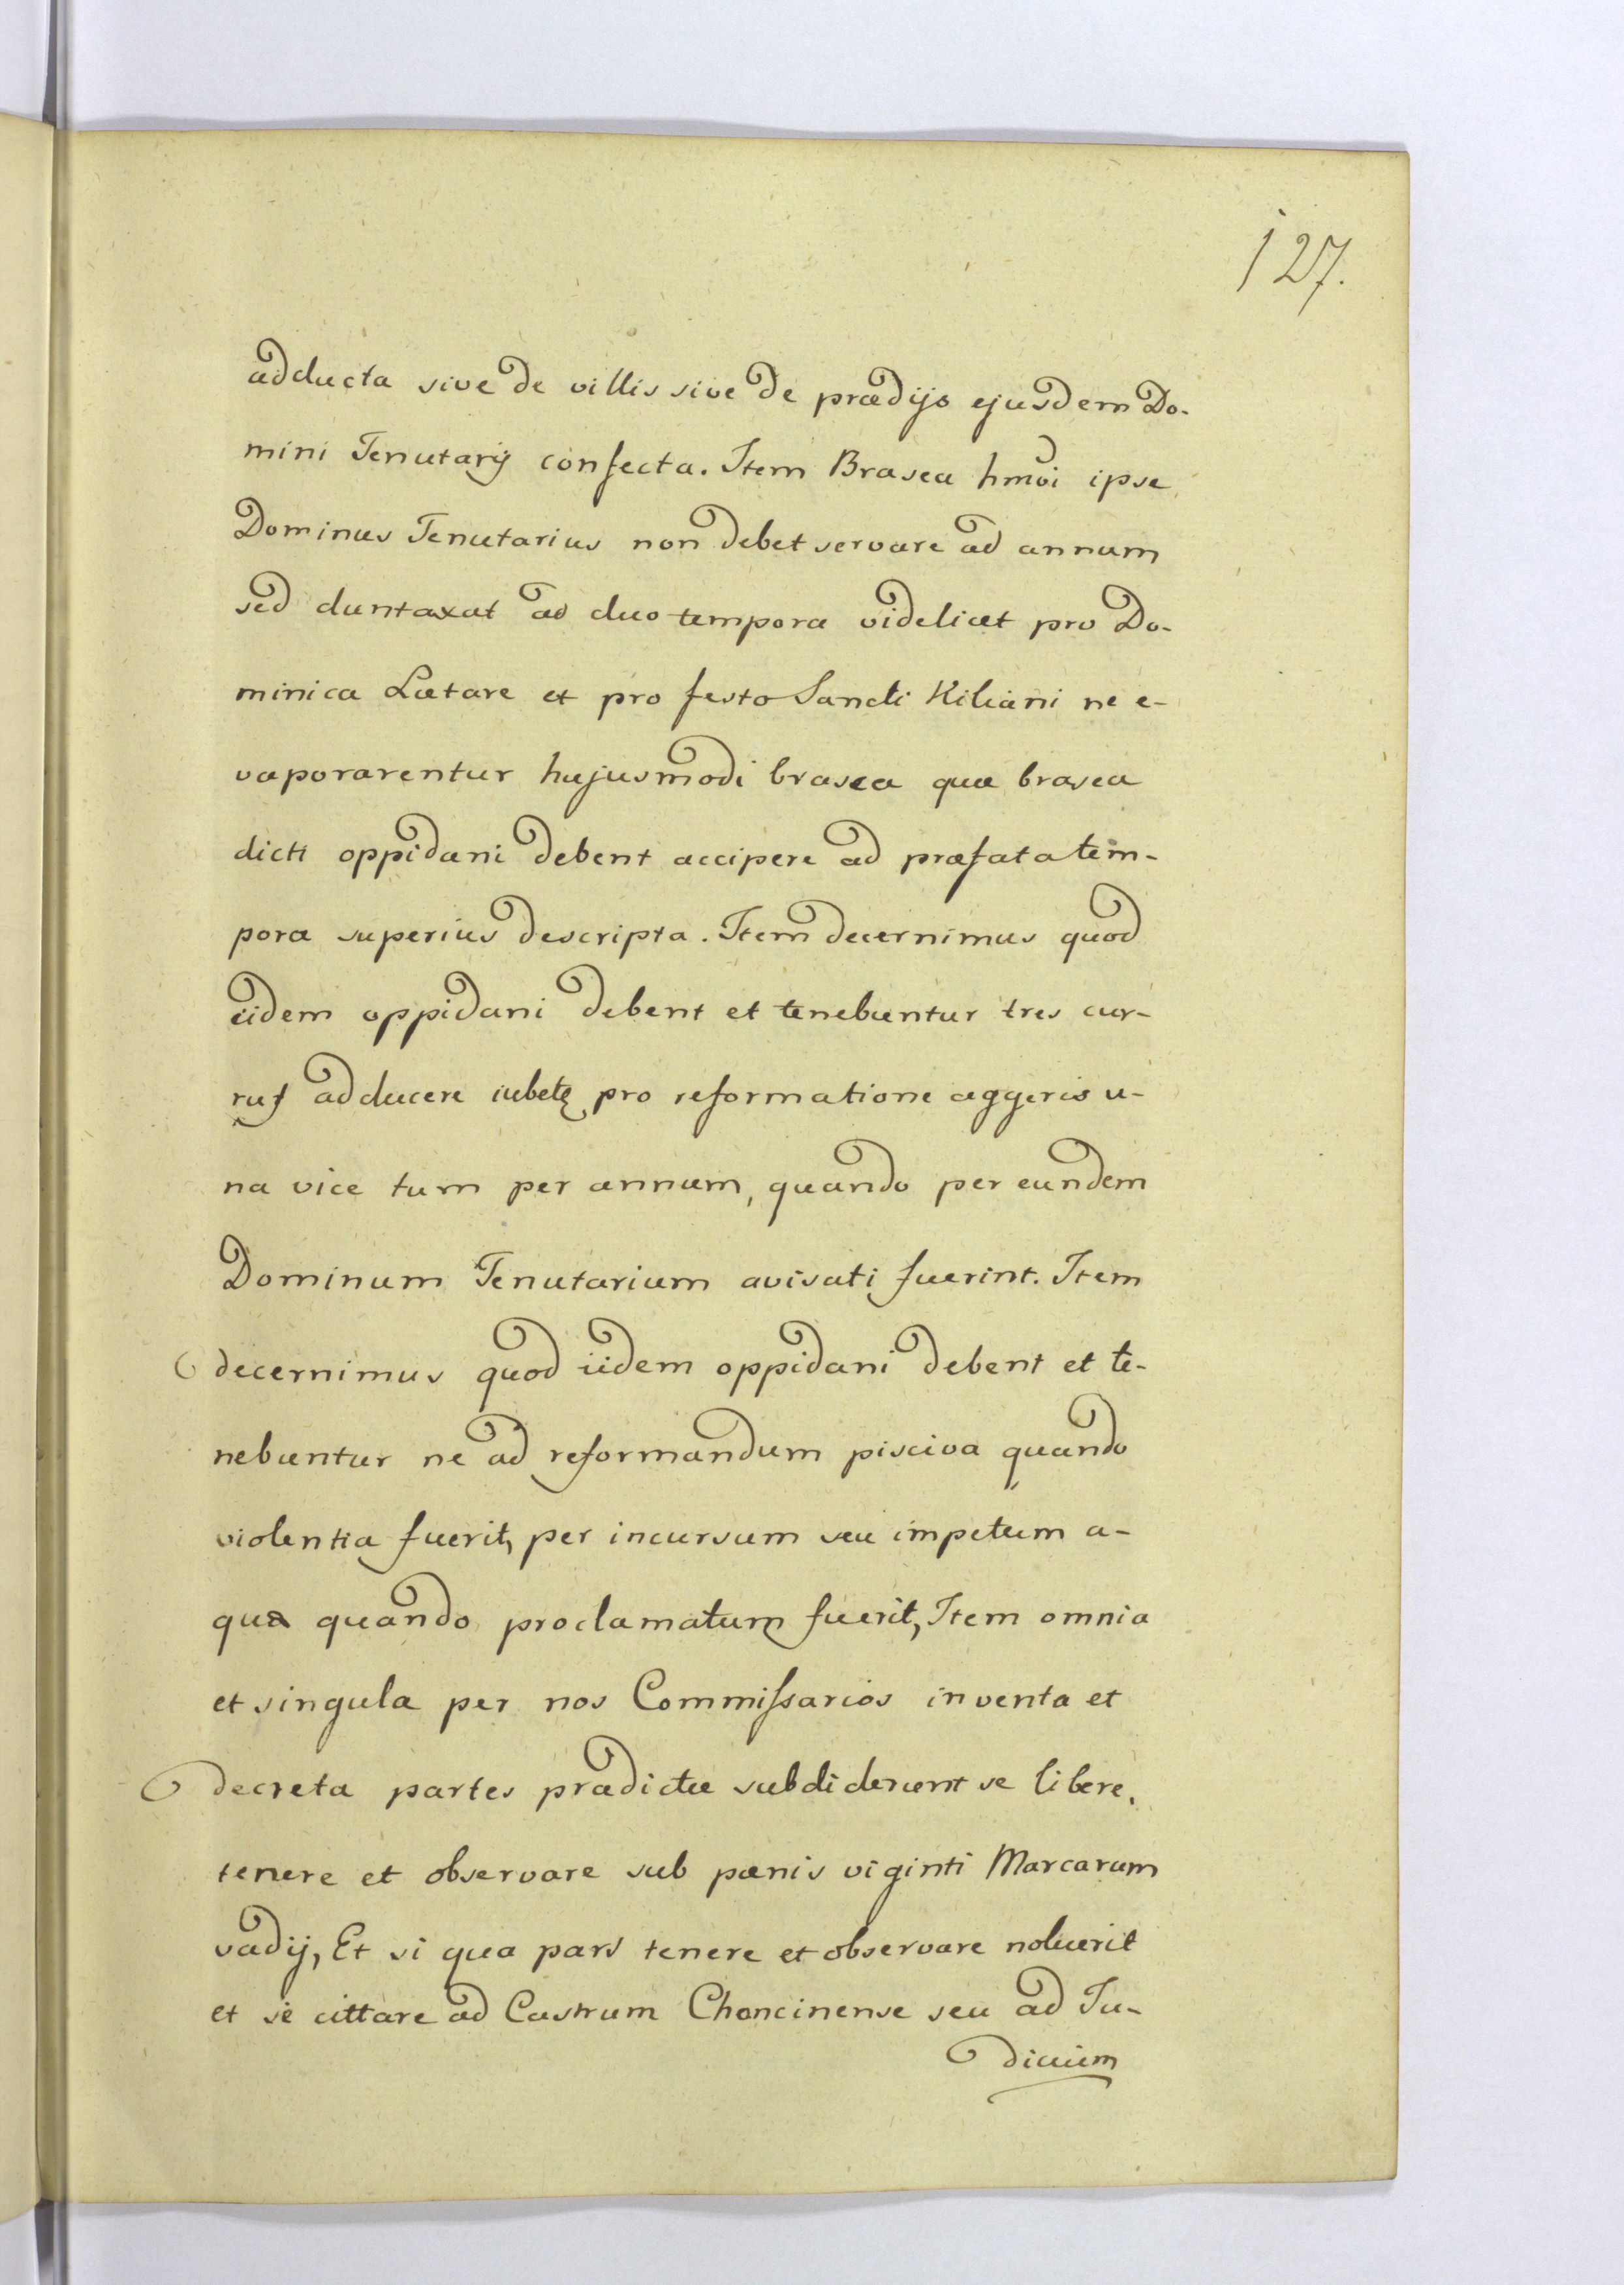 127.
adducta sive de villis sive de prædijs ejusdem Do-
mini Tenutarij confecta. Item Brasea hmōi ipse
Dominus Tenutarius non debet servare ad annum
sed duntaxat ad duo tempora videlicet pro Do-
minica Lætare et pro festo Sancti Kiliani ne e-
vaporarentur hujusmodi brasea quæ brasea
dicti oppidani debent accipere ad præfata tem-
pora superius descripta. Item decernimus quod
iidem oppidani debent et tenebuntur tres cur-
rus adducere pro reformatione aggeris u-
na vice tum per annum, quando per eundem
Dominum Tenutarium avisati fuerint. Item
decernimus quod iidem oppidani debent et te-
nebuntur ne ad reformandum pisciva quando
violentia fuerit, per incursum seu impetum a-
qua quando proclamatum fuerit, Item omnia
et singula per nos Commissarios inventa et
decreta partes prædictæ subdiderunt se libere,
tenere et observare sub pænis viginti Marcarum
vadij, Et si qua pars tenere et observare noluerit
et se cittare ad Castrum Chencinense seu ad Ju-
dicium